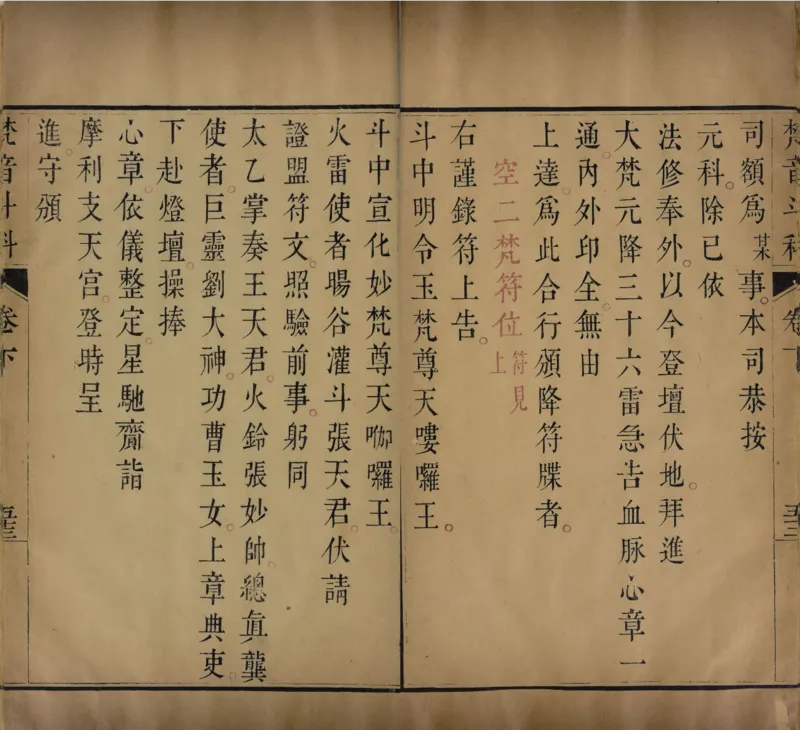 梵音斗科 卷下 五三
司額爲某事。本司恭按
元科。除已依
法修奉外。以今登壇伏地。拜進
大梵元降三十六雷急告血脉心章一
通。內外印全。無由
上達。爲此合行頒降符牒者。
空二梵符位符見上
右謹錄符上告。
斗中明令玉梵尊天嘍囉王。
斗中宣化妙梵尊天㖿囉王。
火雷使者暘谷灌斗張天君。伏請
證盟符文。照驗前事。躬同
太乙掌奏王天君。火鈴張妙帥。總眞龔
使者。巨靈劉大神。功曹玉女。上章典吏。
下赴燈壇。操捧
心章。依儀整定。星馳齎詣
摩利支天宮。登時呈
進。守頒
梵音斗科 卷下 五三